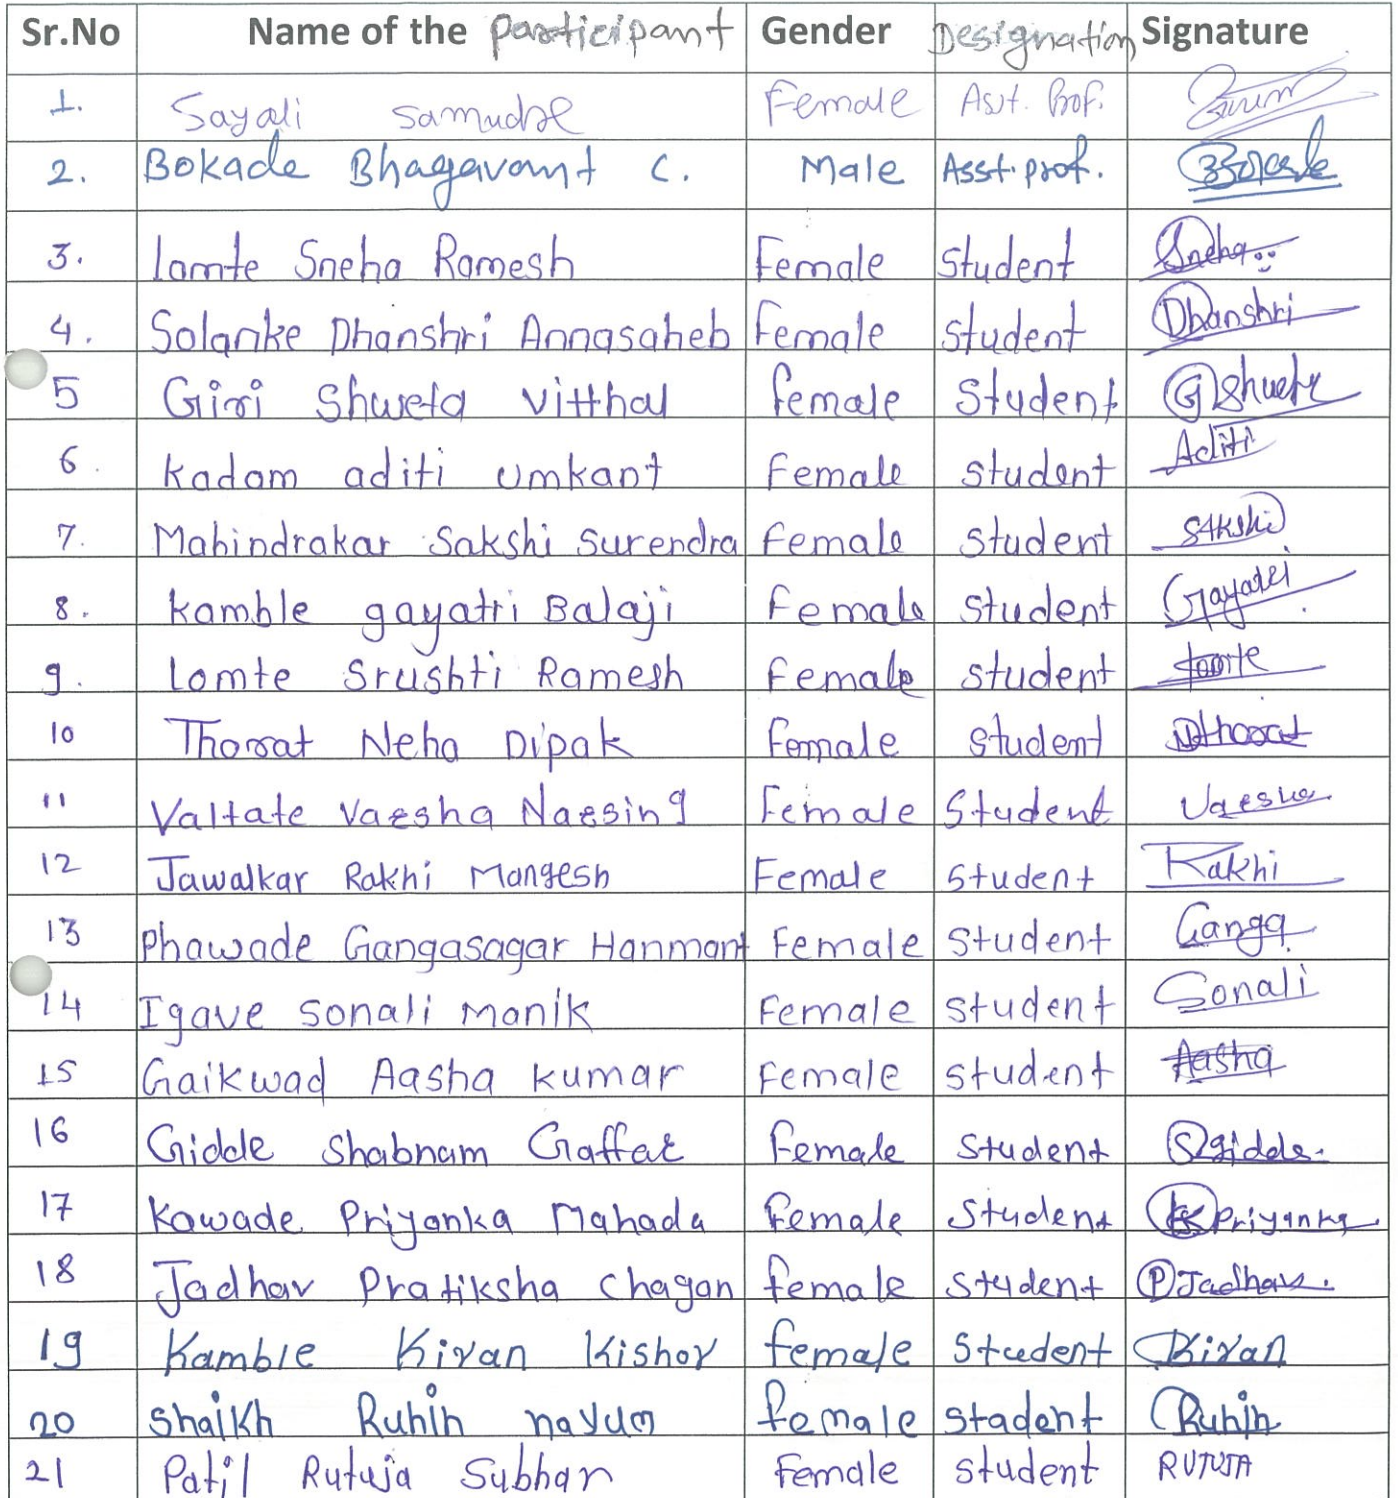 Sr.No Name of the Participant Gender Designation Signature
1. Sayali Samudre Female Asst. Prof.
2. Bokade Bhagavant C. Male Asst. prof. Bokade
3. Lomte Sneha Ramesh Female Student Sneha
4. Solanke Dhanshri Annasaheb Female Student Dhanshri
5 Giri Shweta Vitthal female Student G Shweta
6. Kadam aditi Umkant Female Student Aditi
7. Mahindrakar Sakshi Surendra Female Student Sakshi
8. Kamble gayatri Balaji Female Student Gayatri
9. Lomte Srushti Ramesh Female Student
10 Thorat Neha Dipak Female Student Nthorat
11 Valtate Varsha Narsing Female Student Varsha
12 Jawalkar Rakhi Mangesh Female Student Rakhi
13 Phawade Gangasagar Hanmant Female Student Ganga
14 Igave Sonali Manik Female Student Sonali
15 Gaikwad Aasha Kumar Female Student Aasha
16 Gidde Shabnam Gaffar Female Student S gidde.
17 Kawade Priyanka Mahada Female Student K Priyanka
18 Jadhav Pratiksha Chagan female Student P Jadhav.
19 Kamble Kiran Kishor female Student Kiran
20 Shaikh Ruhin nayum female Stadent Ruhin
21 Patil Rutuja Subhan Female Student RUTUJA